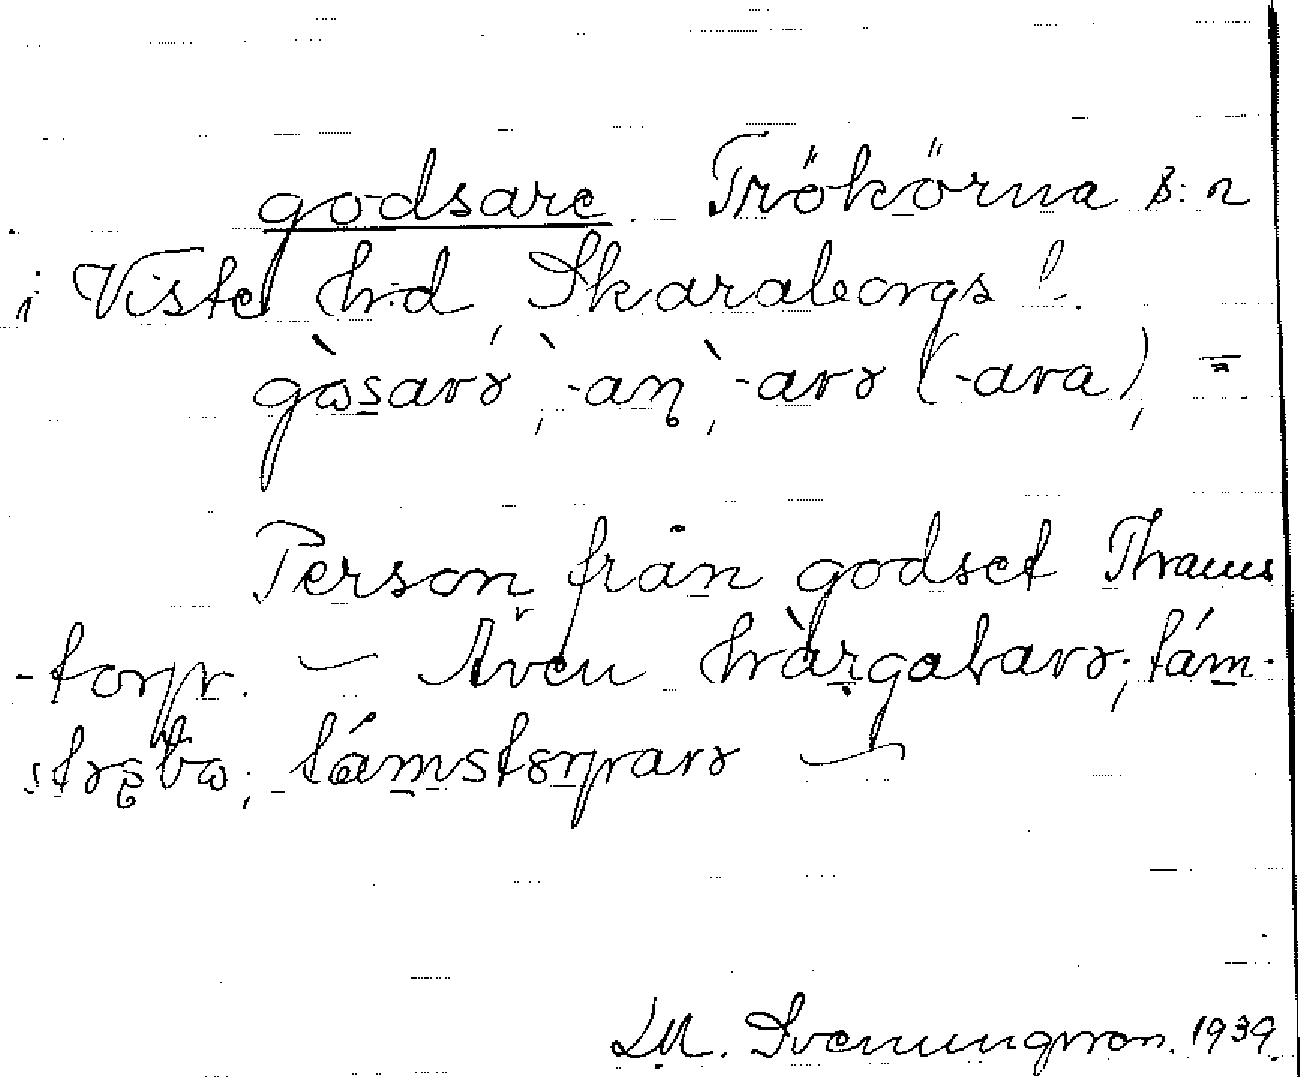 godsare. Trökörna s:n
i Viste h:d, Skaraborgs l.
gὼsarə, -aṇ, -arə (-ara), =
Person från godset Thams
-torp. — Även hàrgabarə; támstərparə —
L M. Svenungsson. 1939.